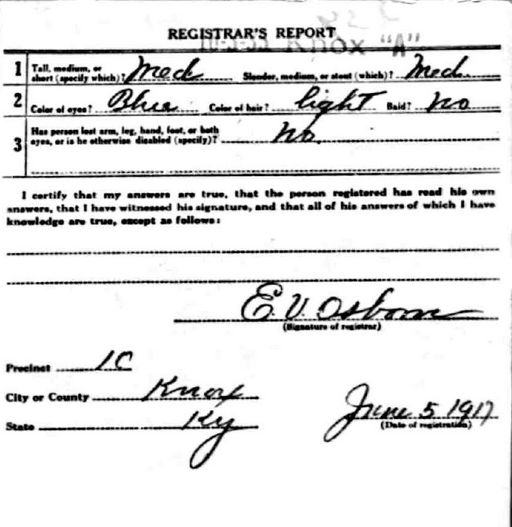 REGISTRAR'S REPORT
Knox "A"
1 Tall, medium, or short (specify which)? Med Slender, medium, or stout (which)? Med.
2 Color of eyes? Blue Color of hair? light Bald? No
3 Has person lost arm, leg, hand, foot, or both eyes, or is he otherwise disabled (specify)? No.
I certify that my answers are true, that the person registered has read his own
answers, that I have witnessed his signature, and that all of his answers of which I have
knowledge are true, except as follows:
E. V. Osborn
(Signature of registrar)
Precinct 1C
City or County Knox
State Ky
June 5 1917
(Date of registration)